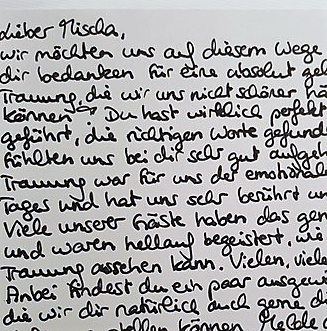 Lieber Mischa,
wir möchten uns auf diesem Wege
dir bedanken für eine absolut gel
Trauung, die wir uns nicht schöner hä
können. Du hast wirklich perfekt
geführt, die richtigen Worte gefund
fühlten uns bei dir sehr gut aufgeh
Trauung war für uns der emotionals
Tages und hat uns sehr berührt un
Viele unserer Gäste haben das gen
und waren hellauf begeistert, wie
Trauung aussehen kann. Vielen, viele
Anbei findest du ein paar ausgew
die wir dir natürlich auch gerne d
stellen können. Melde